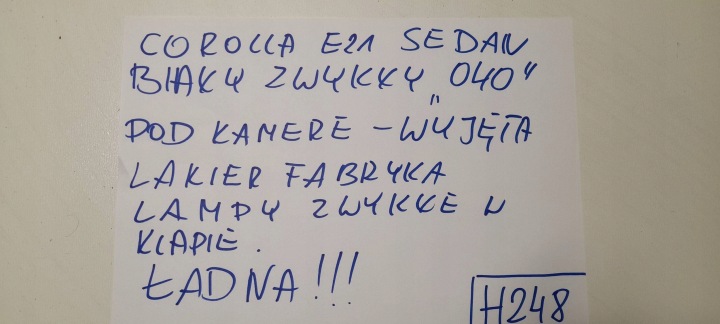 COROLLA E21 SEDAN
BIAŁY ZWYKŁY „040"
POD KAMERE - WYJĘTA
LAKIER FABRYKA
LAMPY ZWYKŁE W
KLAPIE.
ŁADNA!!!
H248